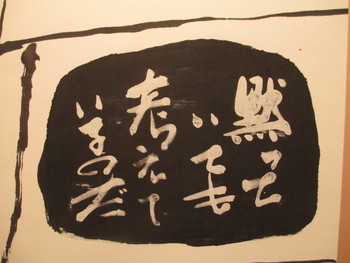 黙って
いても
考えて
いるのだ